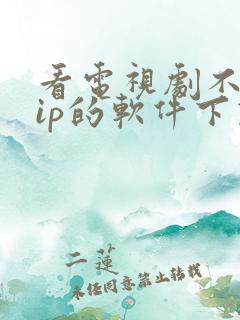 看電視劇不
ip的軟件下
二蓮
未任同意禁止转载